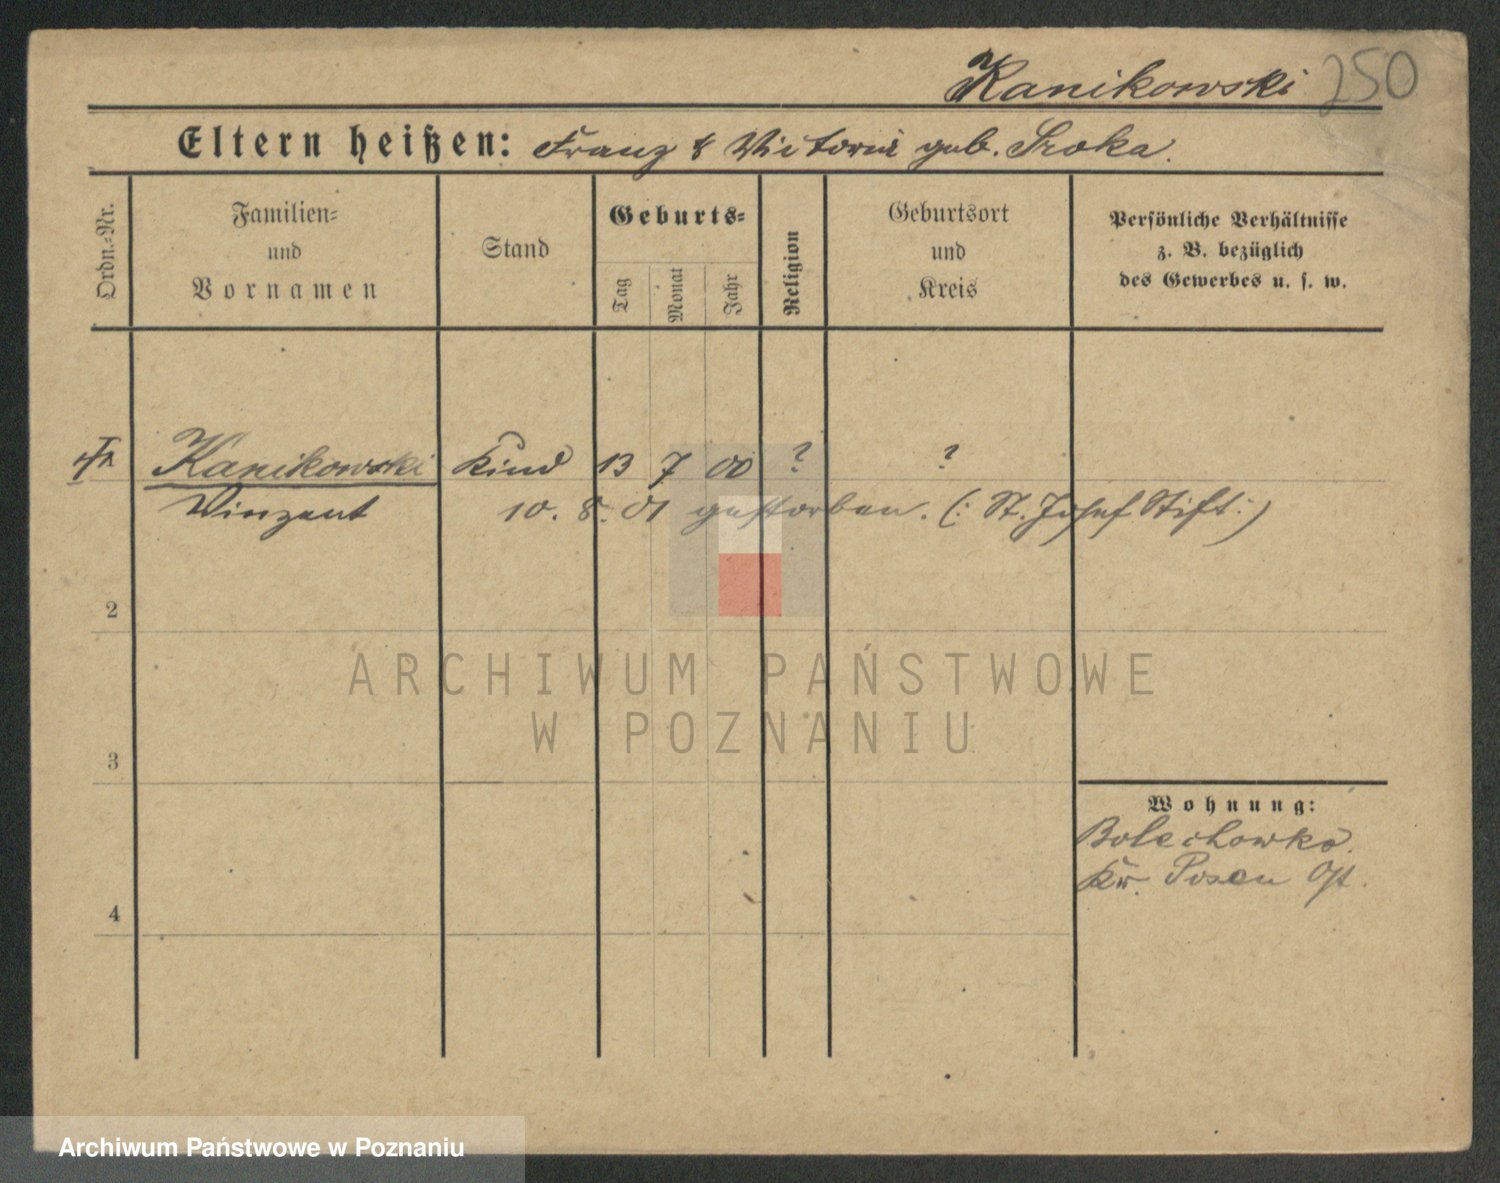 Kanikowski 250
Eltern heißen: Franz & Victoria geb. Sroka.
Ordn.-Nr.
Familien-
und
Vornamen
Stand
Geburts-
Tag
Monat
Jahr
Religion
Geburtsort
und
Kreis
Persönliche Verhältnisse
z. B. bezüglich
des Gewerbes u. s. w.
Kanikowski Kind 13 7 00 ? ?
Vinzent 10. 8. 01 gestorben. (: St. Josef Stift :)
2
3
4
Wohnung:
Bolechowko.
Kr. Posen Ost.
ARCHIWUM PAŃSTWOWE
W POZNANIU
Archiwum Państwowe w Poznaniu